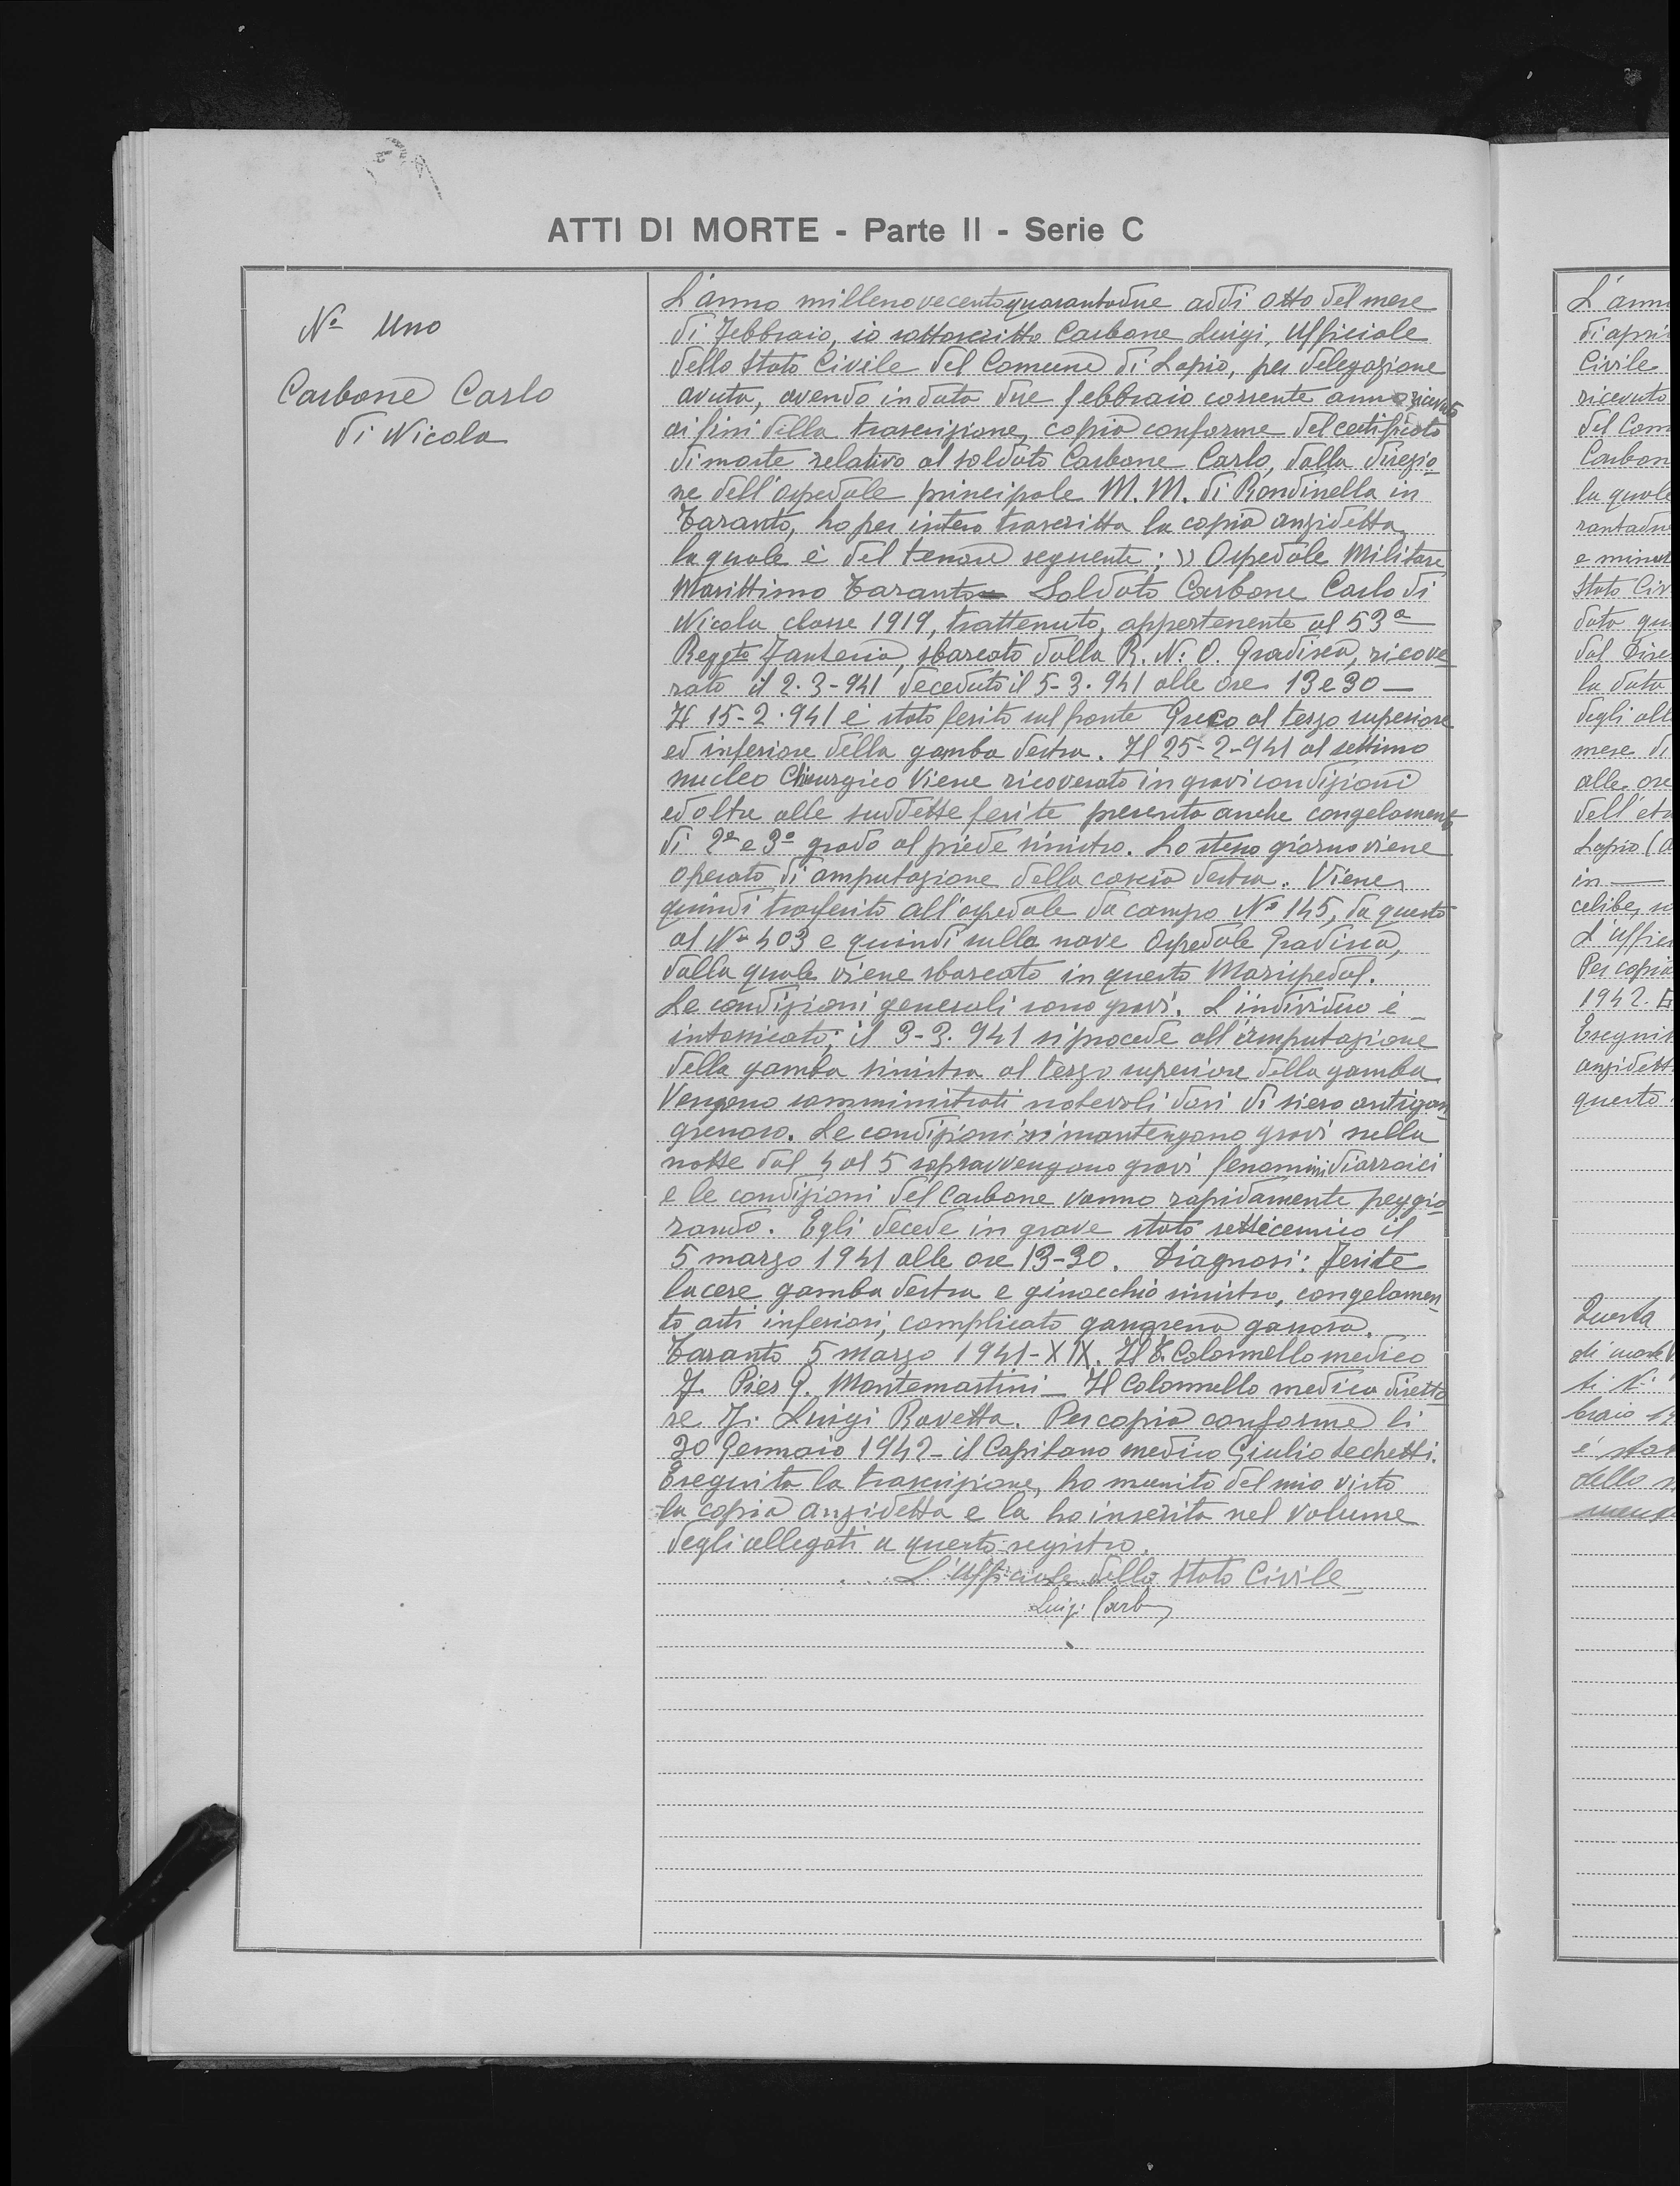 ATTI DI MORTE - Parte II - Serie C
Nº Uno
Carbone Carlo
di Nicola
L'anno millenovecentoquarantadue addì otto del mese
di Febbraio, io sottoscritto Carbone Luigi, Ufficiale
dello Stato Civile del Comune di Lapio, per delegazione
avuta, avendo in data due febbraio corrente anno ricevuto
ai fini della trascrizione, copia conforme del certificato
di morte relativo al soldato Carbone Carlo, dalla direzio
ne dell'ospedale principale M. M. di Rondinella in
Taranto, ho per intero trascritta la copia anzidetta
la quale è del tenore seguente: » Ospedale Militare
Marittimo Taranto - Soldato Carbone Carlo di
Nicola classe 1919, trattenuto, appartenente al 53º
Reggto Fanteria, sbarcato dalla R. N. O. Gradisca, ricove
rato il 2-3-941 deceduto il 5-3-941 alle ore 13 e 30 —
Il 15-2-941 è stato ferito sul fronte Greco al terzo superiore
ed inferiore della gamba destra. Il 25-2-941 al settimo
nucleo Chirurgico Viene ricoverato in gravi condizioni
ed oltre alle suddette ferite presenta anche congelamento
di 2º e 3º grado al piede sinistro. Lo stesso giorno viene
operato di amputazione della coscia destra. Viene
quindi trasferito all'ospedale da campo Nº 145, da questo
al Nº 403 e quindi sulla nave Ospedale Gradisca,
dalla quale viene sbarcato in questo Marispedal.
Le condizioni generali sono gravi. L'individuo è
intossicato; il 3-3-941 si procede all'amputazione
della gamba sinistra al terzo superiore della gamba
Vengono somministrati notevoli dosi di siero antigan
grenoso. Le condizioni si mantengono gravi nella
notte dal 4 al 5 sopravvengono gravi fenomini diarroici
e le condizioni del Carbone vanno rapidamente peggio
rando. Egli decede in grave stato setticemico il
5 marzo 1941 alle ore 13-30. Diagnosi: Ferite
lacere gamba destra e ginocchio sinistro, congelamen
to arti inferiori, complicato gangrena gassosa.
Taranto 5 marzo 1941-XIX. Il T. Colonnello medico
F. Pier G. Montemartini - Il Colonnello medico diretto
re F. Luigi Rovetta. Per copia conforme li
30 Gennaio 1942 - il Capitano medico Giulio
Eseguita la trascrizione, ho munito del mio visto
la copia anzidetta e la ho inserita nel volume
degli allegati a questo registro.
L'Ufficiale dello Stato Civile
Luigi Carb
L'anno
di apri
Civile
ricevuto
del Com
Carbon
la quale
rantadue
e minut
Stato Civ
data qu
dal Dire
la data
degli all
mese di
alle ore
dell'età
Lapio (
in —
celibe, so
L'uffici
Per copia
1942.
Eseguit
anzidett
questo
Questa
di morte
ti N.
braio 19
è stat
dello